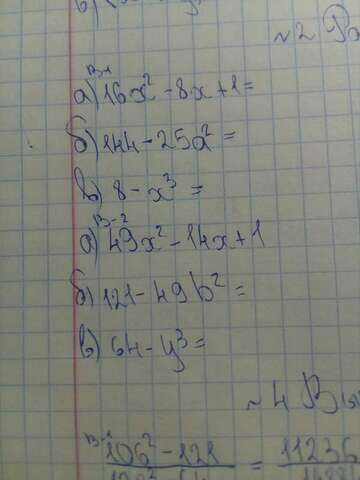 №2
В-1
а) 16x² - 8x + 1 =
б) 144 - 25a² =
в) 8 - x³ =
В-2
а) 49x² - 14x + 1
б) 121 - 49b² =
в) 64 - y³ =
№4
В-1
106² - 121 = 11236